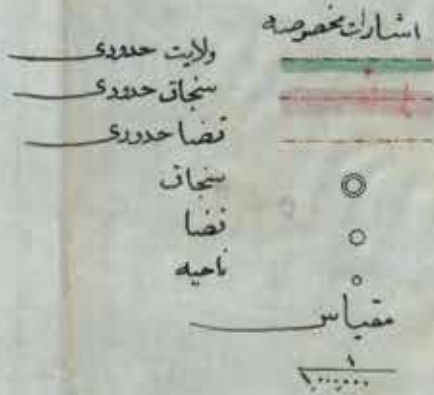 اشارات مخصوصه
ولایت حدودی
سنجاق حدودی
قضا حدودی
سنجاق
قضا
ناحیه
مقیاس
١
١٠٠٠٠٠٠